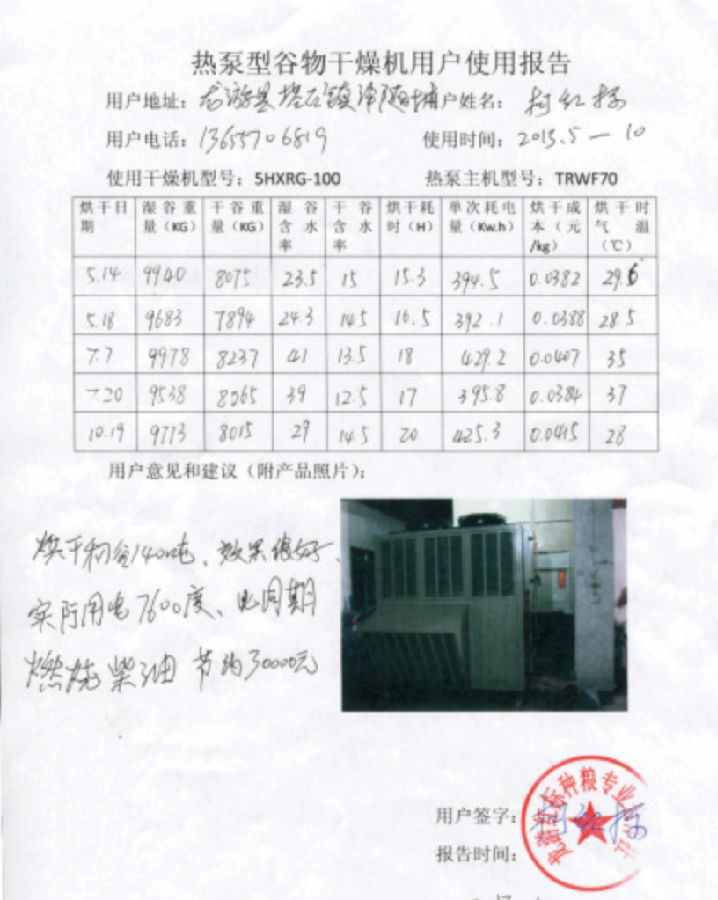 热泵型谷物干燥机用户使用报告
用户地址：龙游县塔石镇泽随埔 用户姓名：柯红标
用户电话：13655706819 使用时间：2015.5—10
使用干燥机型号：5HXRG-100 热泵主机型号：TRWF70
烘干日期 湿谷重量（KG） 干谷重量（KG） 湿谷含水率 干谷含水率 烘干耗时（H） 单次耗电量（Kw.h） 烘干成本（元/kg） 烘干时气温（℃）
5.14 9940 8075 23.5 15 15.3 394.5 0.0382 29.6
5.18 9683 7894 24.3 14.5 16.5 392.1 0.0388 28.5
7.7 9978 8237 41 13.5 18 429.2 0.0407 35
7.20 9538 8065 39 12.5 17 395.8 0.0384 37
10.19 9773 8015 29 14.5 20 425.3 0.0415 28
用户意见和建议（附产品照片）：
烘干稻谷1400吨、效果很好、
实际用电7600度、比同期
燃烧柴油 节约30000元
用户签字：柯红标
报告时间：